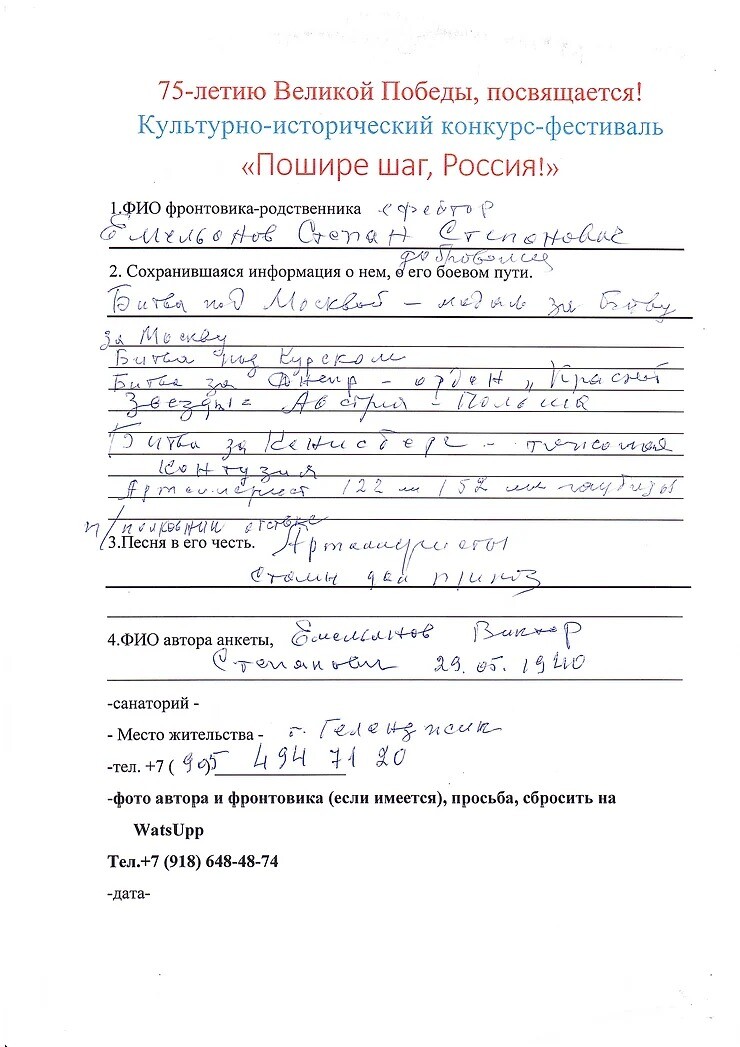 75-летию Великой Победы, посвящается!
Культурно-исторический конкурс-фестиваль
«Пошире шаг, Россия!»
1.ФИО фронтовика-родственника
Емельянов Степан Степанович
доброволец
2. Сохранившаяся информация о нем, о его боевом пути.
Битва под Москвой – медаль за битву
за Москву
Битва под Курском
Битва за Днепр – орден „Красной
Звезды" Австрия – Польша
Битва за Кенисберг – тяжолая
контузия
Артиллерист 122 и 152 мм гаубизы
п/полковник отставке
3.Песня в его честь. Артиллеристы
Сталин дал приказ
4.ФИО автора анкеты, Емельянов Виктор
Степанович 29.05.1940
-санаторий -
- Место жительства - г. Геленджик
-тел. +7 (905) 494 71 20
-фото автора и фронтовика (если имеется), просьба, сбросить на
WatsUpp
Тел.+7 (918) 648-48-74
-дата-